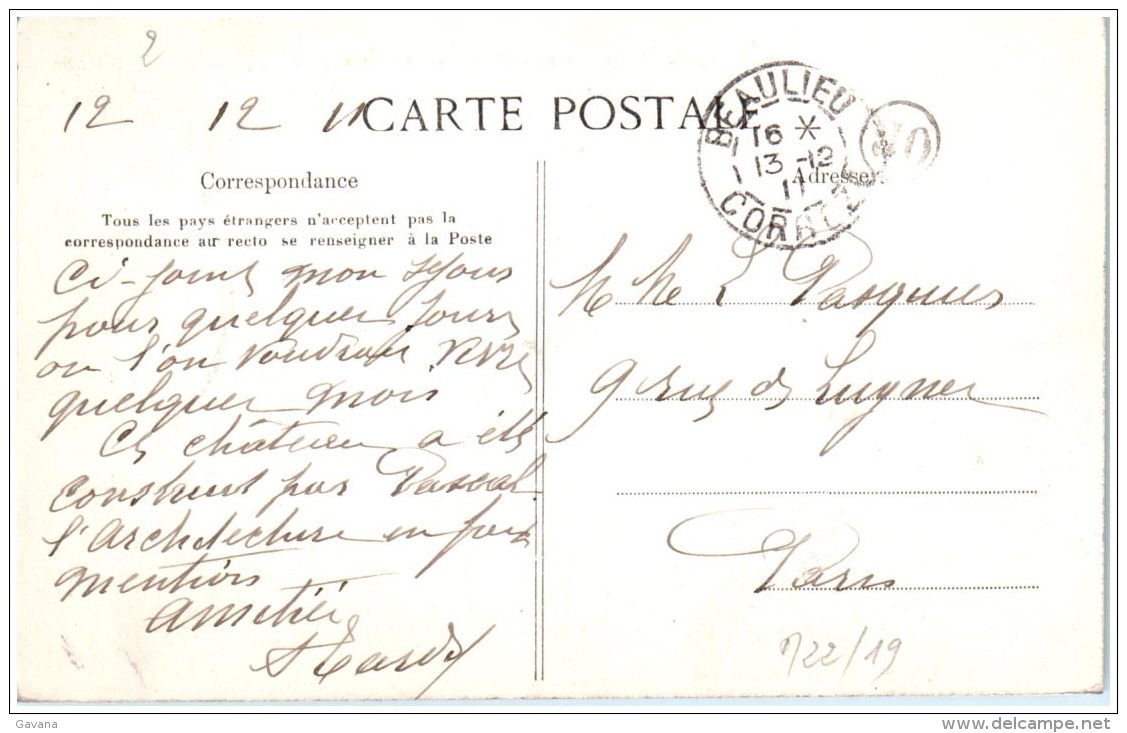 2
12 12 11
CARTE POSTALE
BEAULIEU
16 *
13 -12
11
CORREZE
Correspondance
Adresse
Tous les pays étrangers n'acceptent pas la
correspondance au recto se renseigner à la Poste
Ci-joint mon séjour
pour quelques jours
ou l'on voudrait vivre
quelques mois
Ce château a été
construit par Pascal
l'architecture en fait
mention
Amitié
Hardy
Mr Me L Pasquier
9 rue de Luynes
Paris
722/19
Gavana
delcampe.net